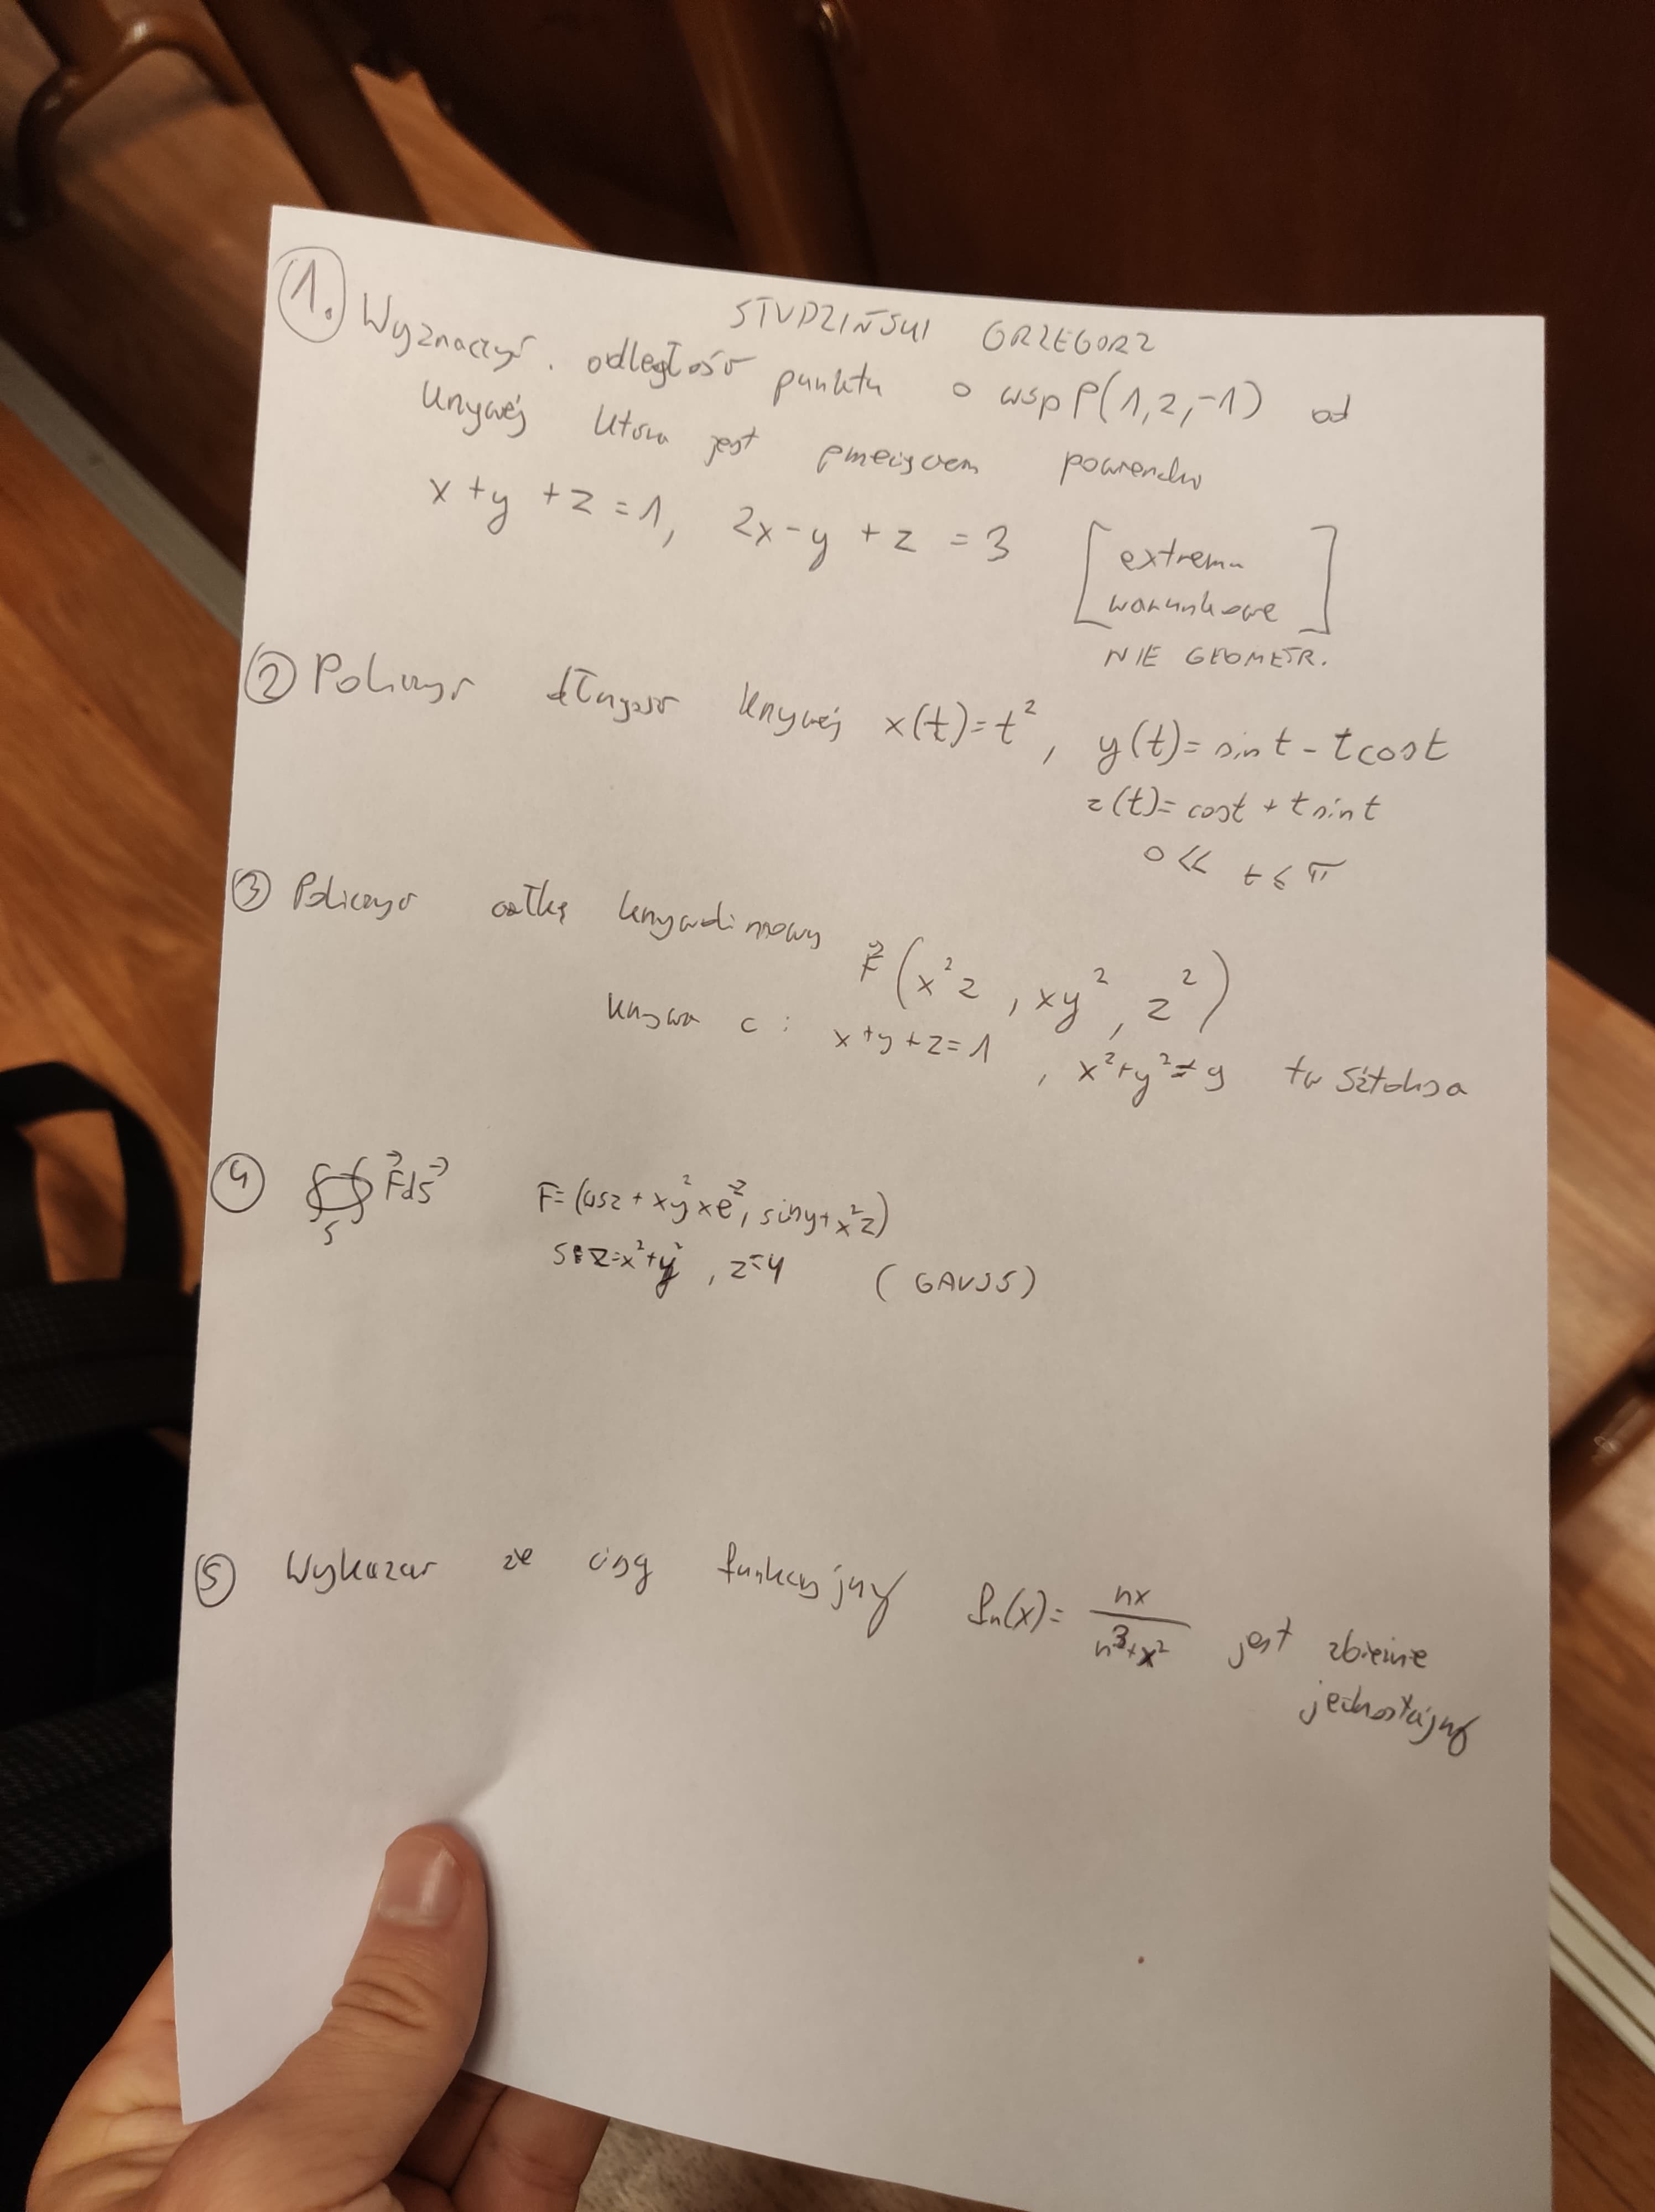 STUDZIŃSKI GRZEGORZ
1. Wyznaczyć odległość punktu o wsp P(1,2,-1) od
krzywej która jest przecięciem powierzchni
x + y + z = 1, 2x - y + z = 3 [extrema
warunkowe]
NIE GEOMETR.
2 Policzyć długość krzywej x(t) = t², y(t) = sin t - t cos t
z(t) = cost + t sin t
0 ≪ t ≤ π
3 Policzyć całkę krzywoliniową F⃗ (x²z, xy², z²)
krzywa c: x+y+z=1, x²+y²=9 tw Sztoksa
4 ∯ F⃗ dS⃗ F = (cosz + xy² xe⁻ᶻ, siny + x²z)
S
S: z = x²+y², z=4 (GAUSS)
5 Wykazać że ciąg funkcyjny fn(x) = nx / n³+x² jest zbieżne
jednostajny